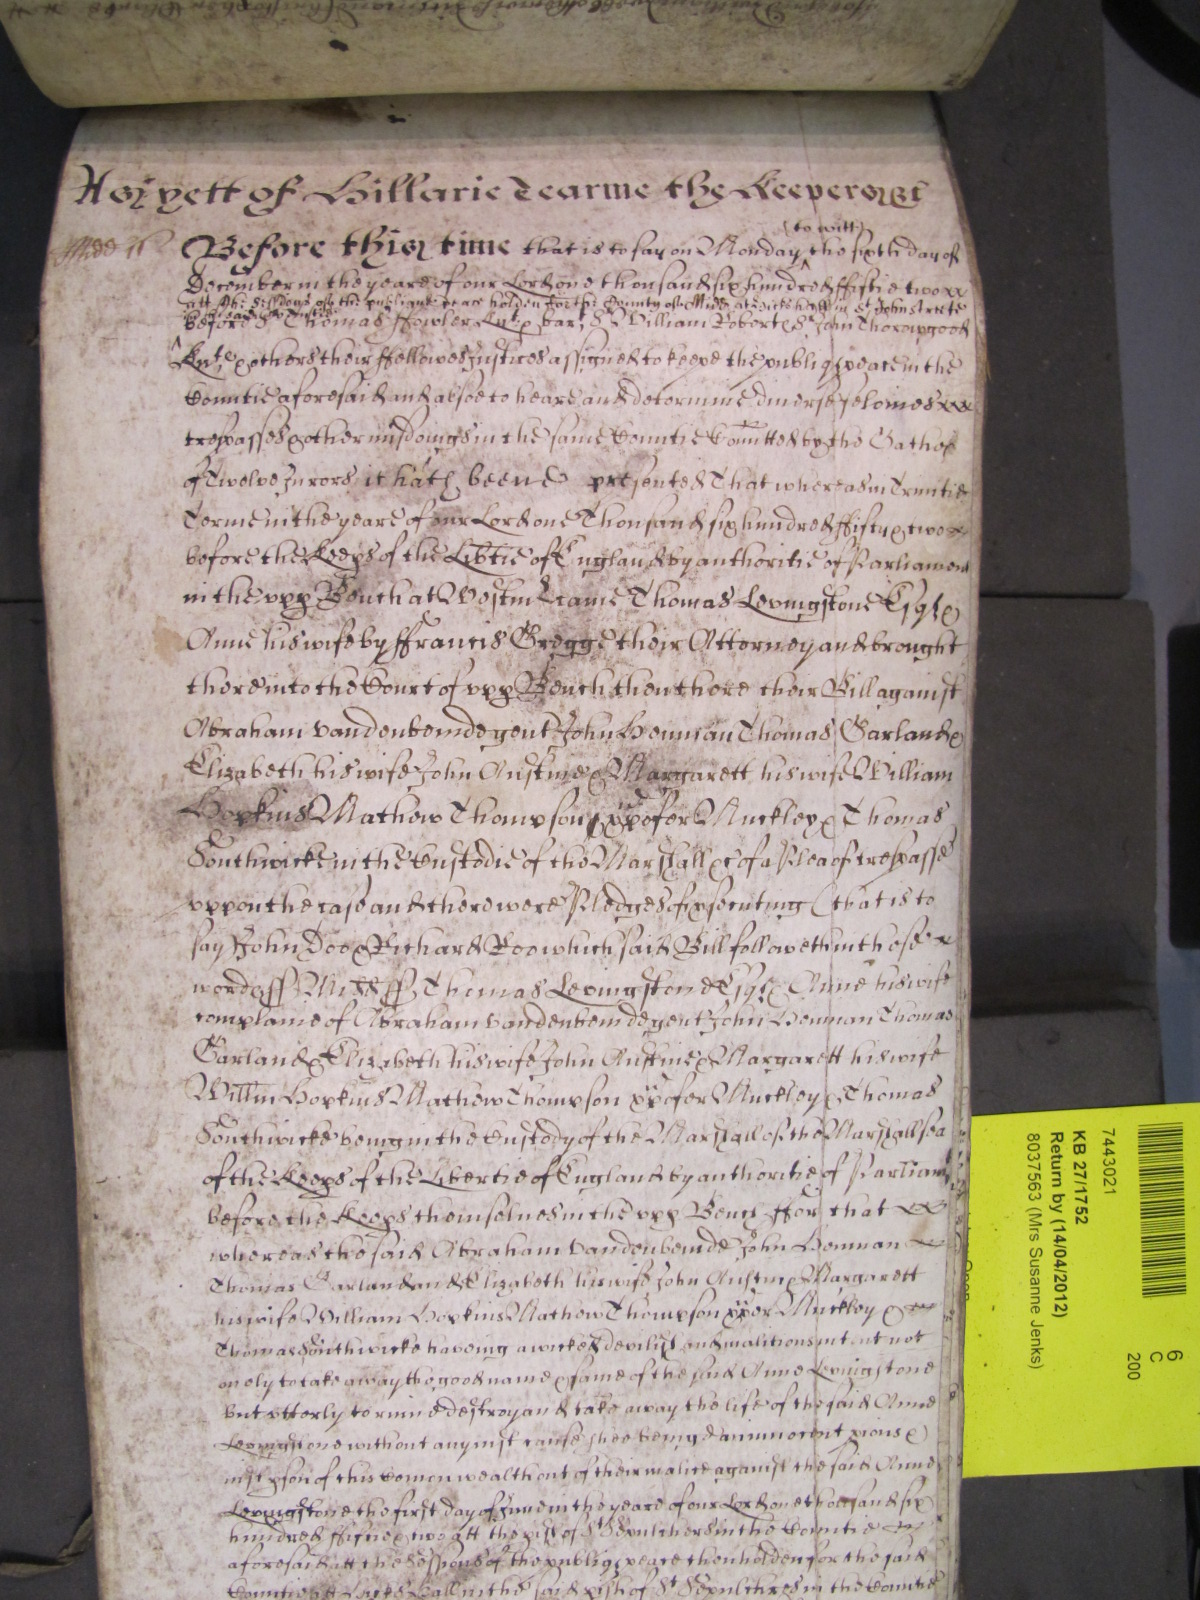 As yett of Hillarie Tearme the Keepers &c
Midd ss Before this time that is to say on Monday (to witt) the sixth day of
December in the yeare of our Lord one thousand six hundred & ffiftie two
att the Sessions of the publique peace holden for the County of Midd at Hicks hall in St John streete
before Sr Thomas ffowler Knt & bart Sr William Robert & Sr John Thorowgood
Knts & others their ffellowes Justices assigned to keepe the publiq peace in the
Countie aforesaid and alsoe to heare and determine diverse felonies
trespasses & other misdoings in the same Countie comitted by the Oathes
of Twelve Jurors it hath beene presented That whereas in Trinitie
Terme in the yeare of our Lord one Thousand six hundred ffifty & two
before the Keeps of the Libtie of England by authoritie of Parliament
in the upp Bench at Westm came Thomas Levingstone Esqr &
Anne his wife by ffrancis Gregge their Attorney and brought
there into the Court of upp Bench then there their Bill against
Abraham Vandenbemde gent John Hennian Thomas Garland &
Elizabeth his wife John Austine & Margarett his wife William
Hopkins Mathew Thompson xpofer Muckley & Thomas
Southwicke in the Custodie of the Marshall &c of a Plea of trespasse
uppon the case and there were Pledges of psecuting (that is to
say John Doo & Richard Roo which said Bill followeth in these
words ss Midd ss Thomas Levingstone Esqr & Anne his wife
complaine of Abraham Vandenbemde gent John Henman Thomas
Garland & Elizabeth his wife John Austine & Margarett his wife
Willm Hopkins Mathew Thompson xpofer Muckley & Thomas
Southwicke being in the Custody of the Marshall of the Marshallsea
of the Keeps of the Libertie of England by authoritie of Parliamt
before the Keeps themselves in the upp Bench ffor that
whereas the said Abraham Vandenbemde John Henman
Thomas Garland and Elizabeth his wife John Austin & Margarett
his wife William Hopkins Mathew Thompson xpofer Muckley &
Thomas Southwicke haveing a wicked devilish and malitious intent not
onely to take away the good name & fame of the said Anne Levingstone
but utterly to ruine destroy and take away the life of the said Anne
Levingstone without any just cause shee being an innocent pious &
just pson of this Comonwealth out of their malice against the said Anne
Levingstone the first day of June in the yeare of our Lord one thousand six
hundred ffiftie & two att the pish of St Sepulchers in the Countie
aforesaid att the Sessions of the publiq peace then holden for the said
Countie att Hicks Hall in the said pish of St Sepulchres in the Countie
7443021
KB 27/1752
Return by (14/04/2012)
8037563 (Mrs Susanne Jenks)
6
C
200